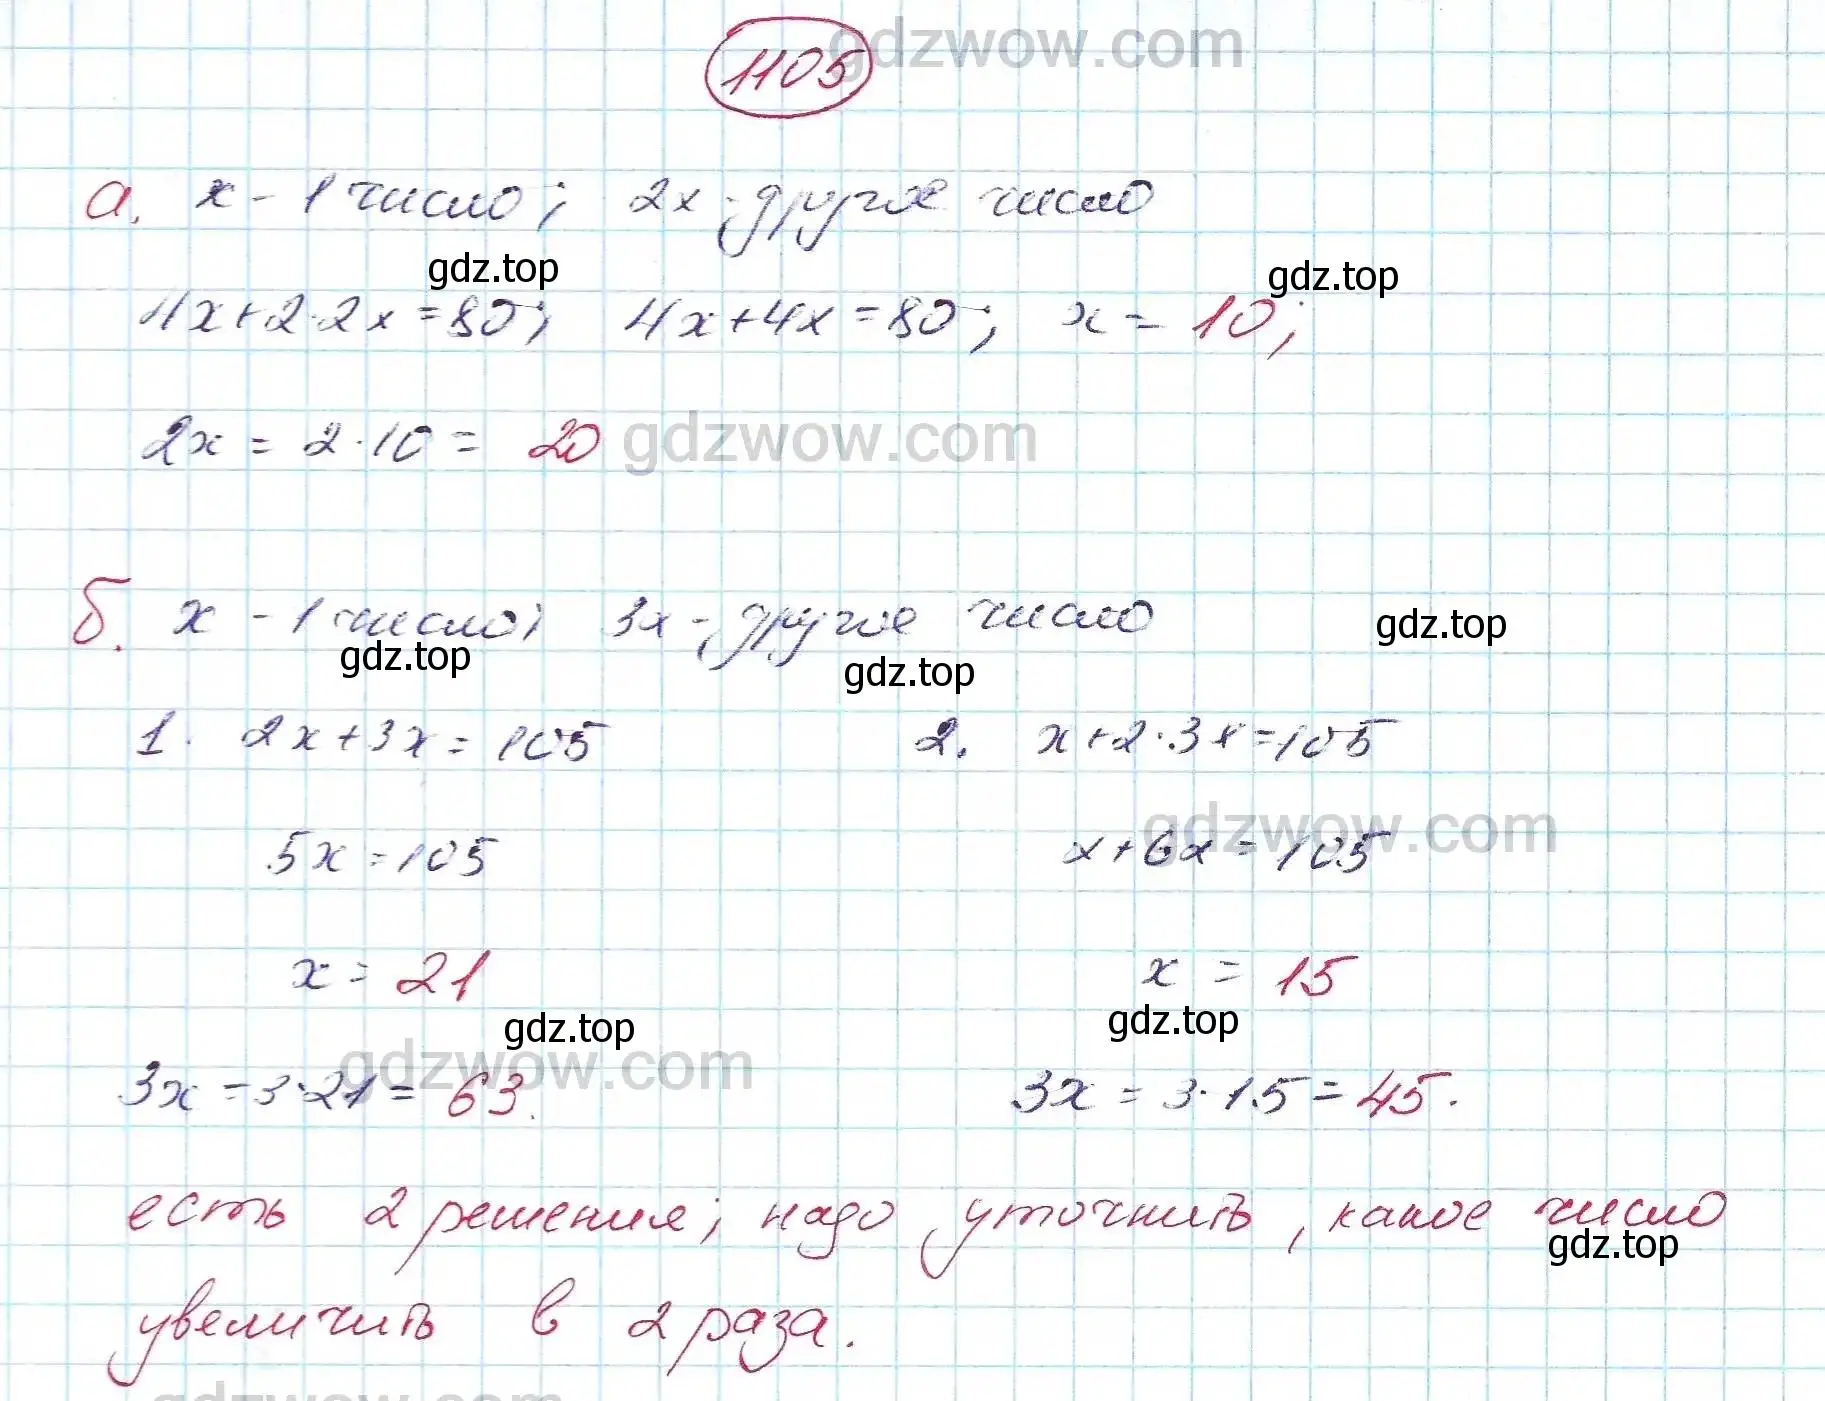 1105 gdzwow.com
а. x - 1 число; 2x - другое число
gdz.top gdz.top
4x+2·2x=80; 4x+4x=80; x=10;
2x = 2·10 = 20 gdzwow.com
б. x - 1 число; 3x - другое число gdz.top
gdz.top gdz.top
1. 2x+3x=105 2. x+2·3x=105
gdzwow.com
5x=105 x+6x=105
x=21 x = 15
gdz.top gdz.top
gdzwow.com
3x=3·21=63. 3x = 3·15=45.
есть 2 решения; надо уточнить, какое число
gdz.top
увеличить в 2 раза.
gdzwow.com